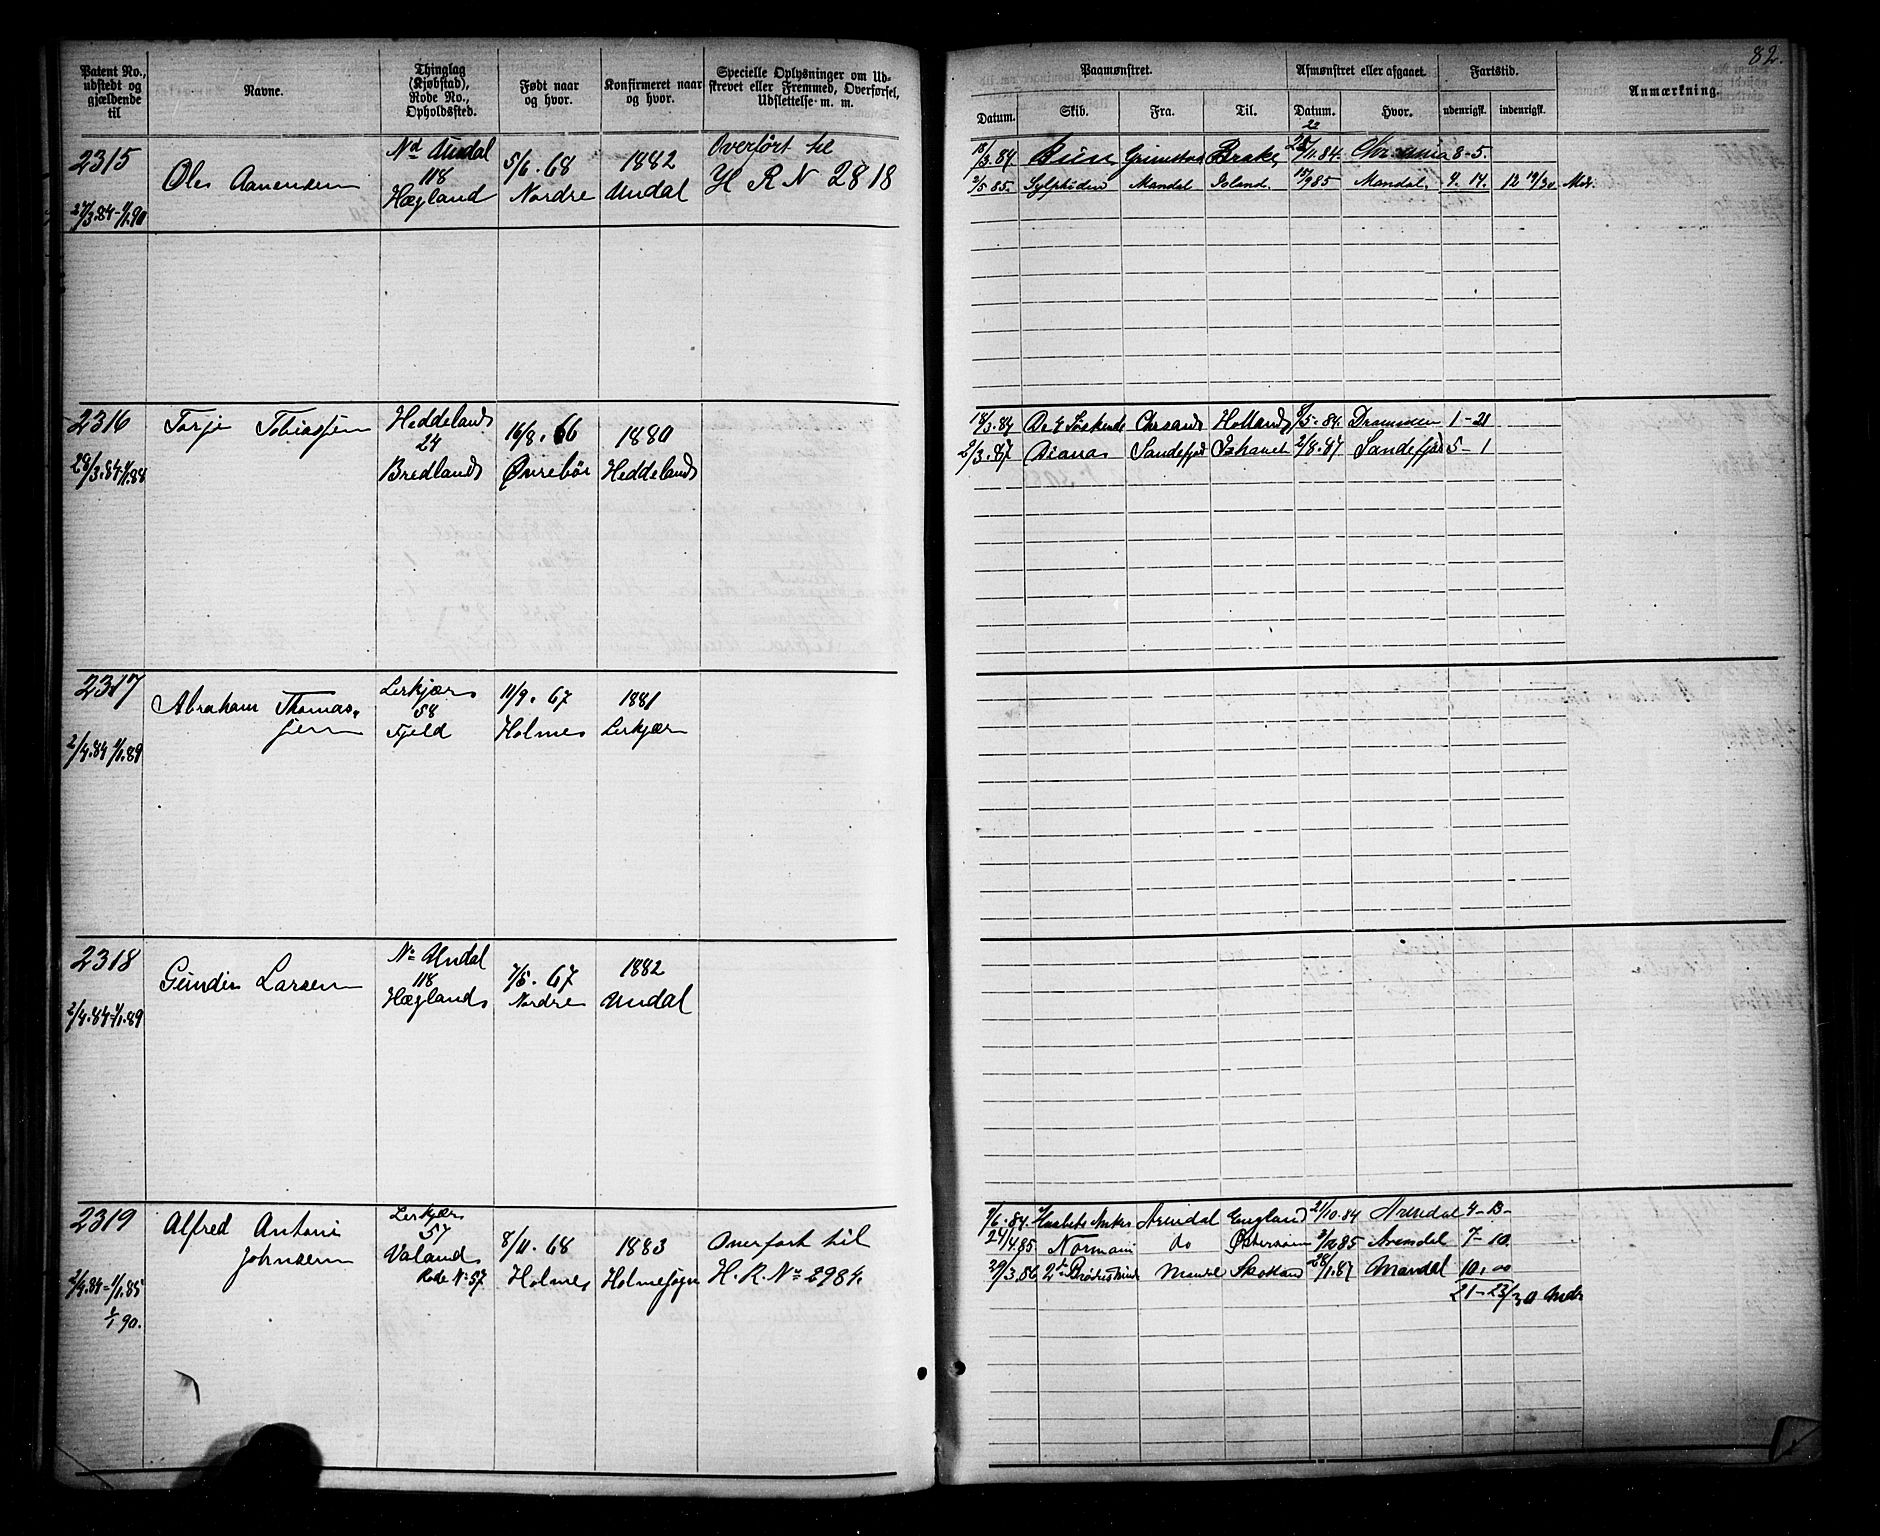 82.
Patent No., udstedt og gjældende til
Navne.
Thinglag (Kjøbstad), Rode No., Opholdssted.
Født naar og hvor.
Konfirmeret naar og hvor.
Specielle Oplysninger om Udskrevet eller Fremmed, Overførsel, Udslettelse m. m.
Paamønstret.
Afmønstret eller afgaaet.
Fartstid.
Anmærkning.
Datum.
Skib.
Fra.
Til.
Datum.
Hvor.
udenrigsk.
indenrigsk.
2315
Ole Aanensen
Nd Undal
118
Hægland
5/6. 68
Nordre
1882
Undal
Overført til
H R N 2818
27/3.84-1/1.90
18/3.84 Grimstad Brake 22 /11.84. 8-5.
2/5 85. Sylphiden Mandal Island. 15/9 85 Mandal. 4. 14. 12 19/30
2316
Torje Tobiassen
Heddeland
24
Bredland
16/8. 66
Øvrebø
1880
Heddeland
28/3.84 1/1.88
18/3.84 De 6 Søskende Chrsand Holland 8/5-84. Drammen 1-21
2/3.87 Diana Sandefjord Ishavet 2/8.87 Sandefjord 5-1
2317
Abraham Thomas-
sen
Lerkjær
58
Fjeld
11/9. 67
Holme
1881
Lerkjær
2/4.84 1/1.89
2318
Gunder Larsen
No Undal
118
Hægland
7/5. 67
Nordre
1882
Undal
2/4.84-1/1.89
2319
Alfred Antoni
Johnsen
Lerkjær
57
Valand
Rode No 57
8/11. 68
Holme
1883
Holme sogn
Overført til
H. R. No 2984.
2/4.84-1/1.85
1/1 90.
9/6.84. Haabets Anker Arendal England 21/10.84 Arendal 4-13-
24/4.85 Normani do Østersøen 85 Arendal 7-10
29/3.86 2de Brødre Mandal Skotland 28/1.87 Mandal 10.00
21-23/30 Mdr